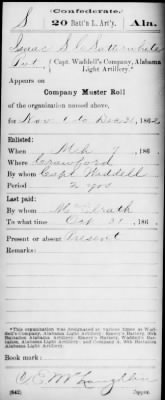 S (Confederate.)
20 Batt'n L. Art'y. Ala.
Isaac S C
Pvt, Capt. Waddell's Company, Alabama
Light Artillery.*
Appears on
Company Muster Roll
of the organization named above,
for Nov 1 to Dec 31, 186
Enlisted:
When Mch 7, 186
Where Crawford
By whom Capt Waddell
Period 2 yrs
Last paid:
By whom McElrath
To what time Oct 31, 186
Present or absent Present
Remarks:
*This organization was designated at various times as Wad-
dell's Company, Alabama Light Artillery; Emery's Battery, 20th
Battalion Alabama Light Artillery; Emery's Battery, Ala-
bama Light Artillery, and Company A, 20th Battalion
Alabama Light Artillery.
Book mark:
(642) Copyist.